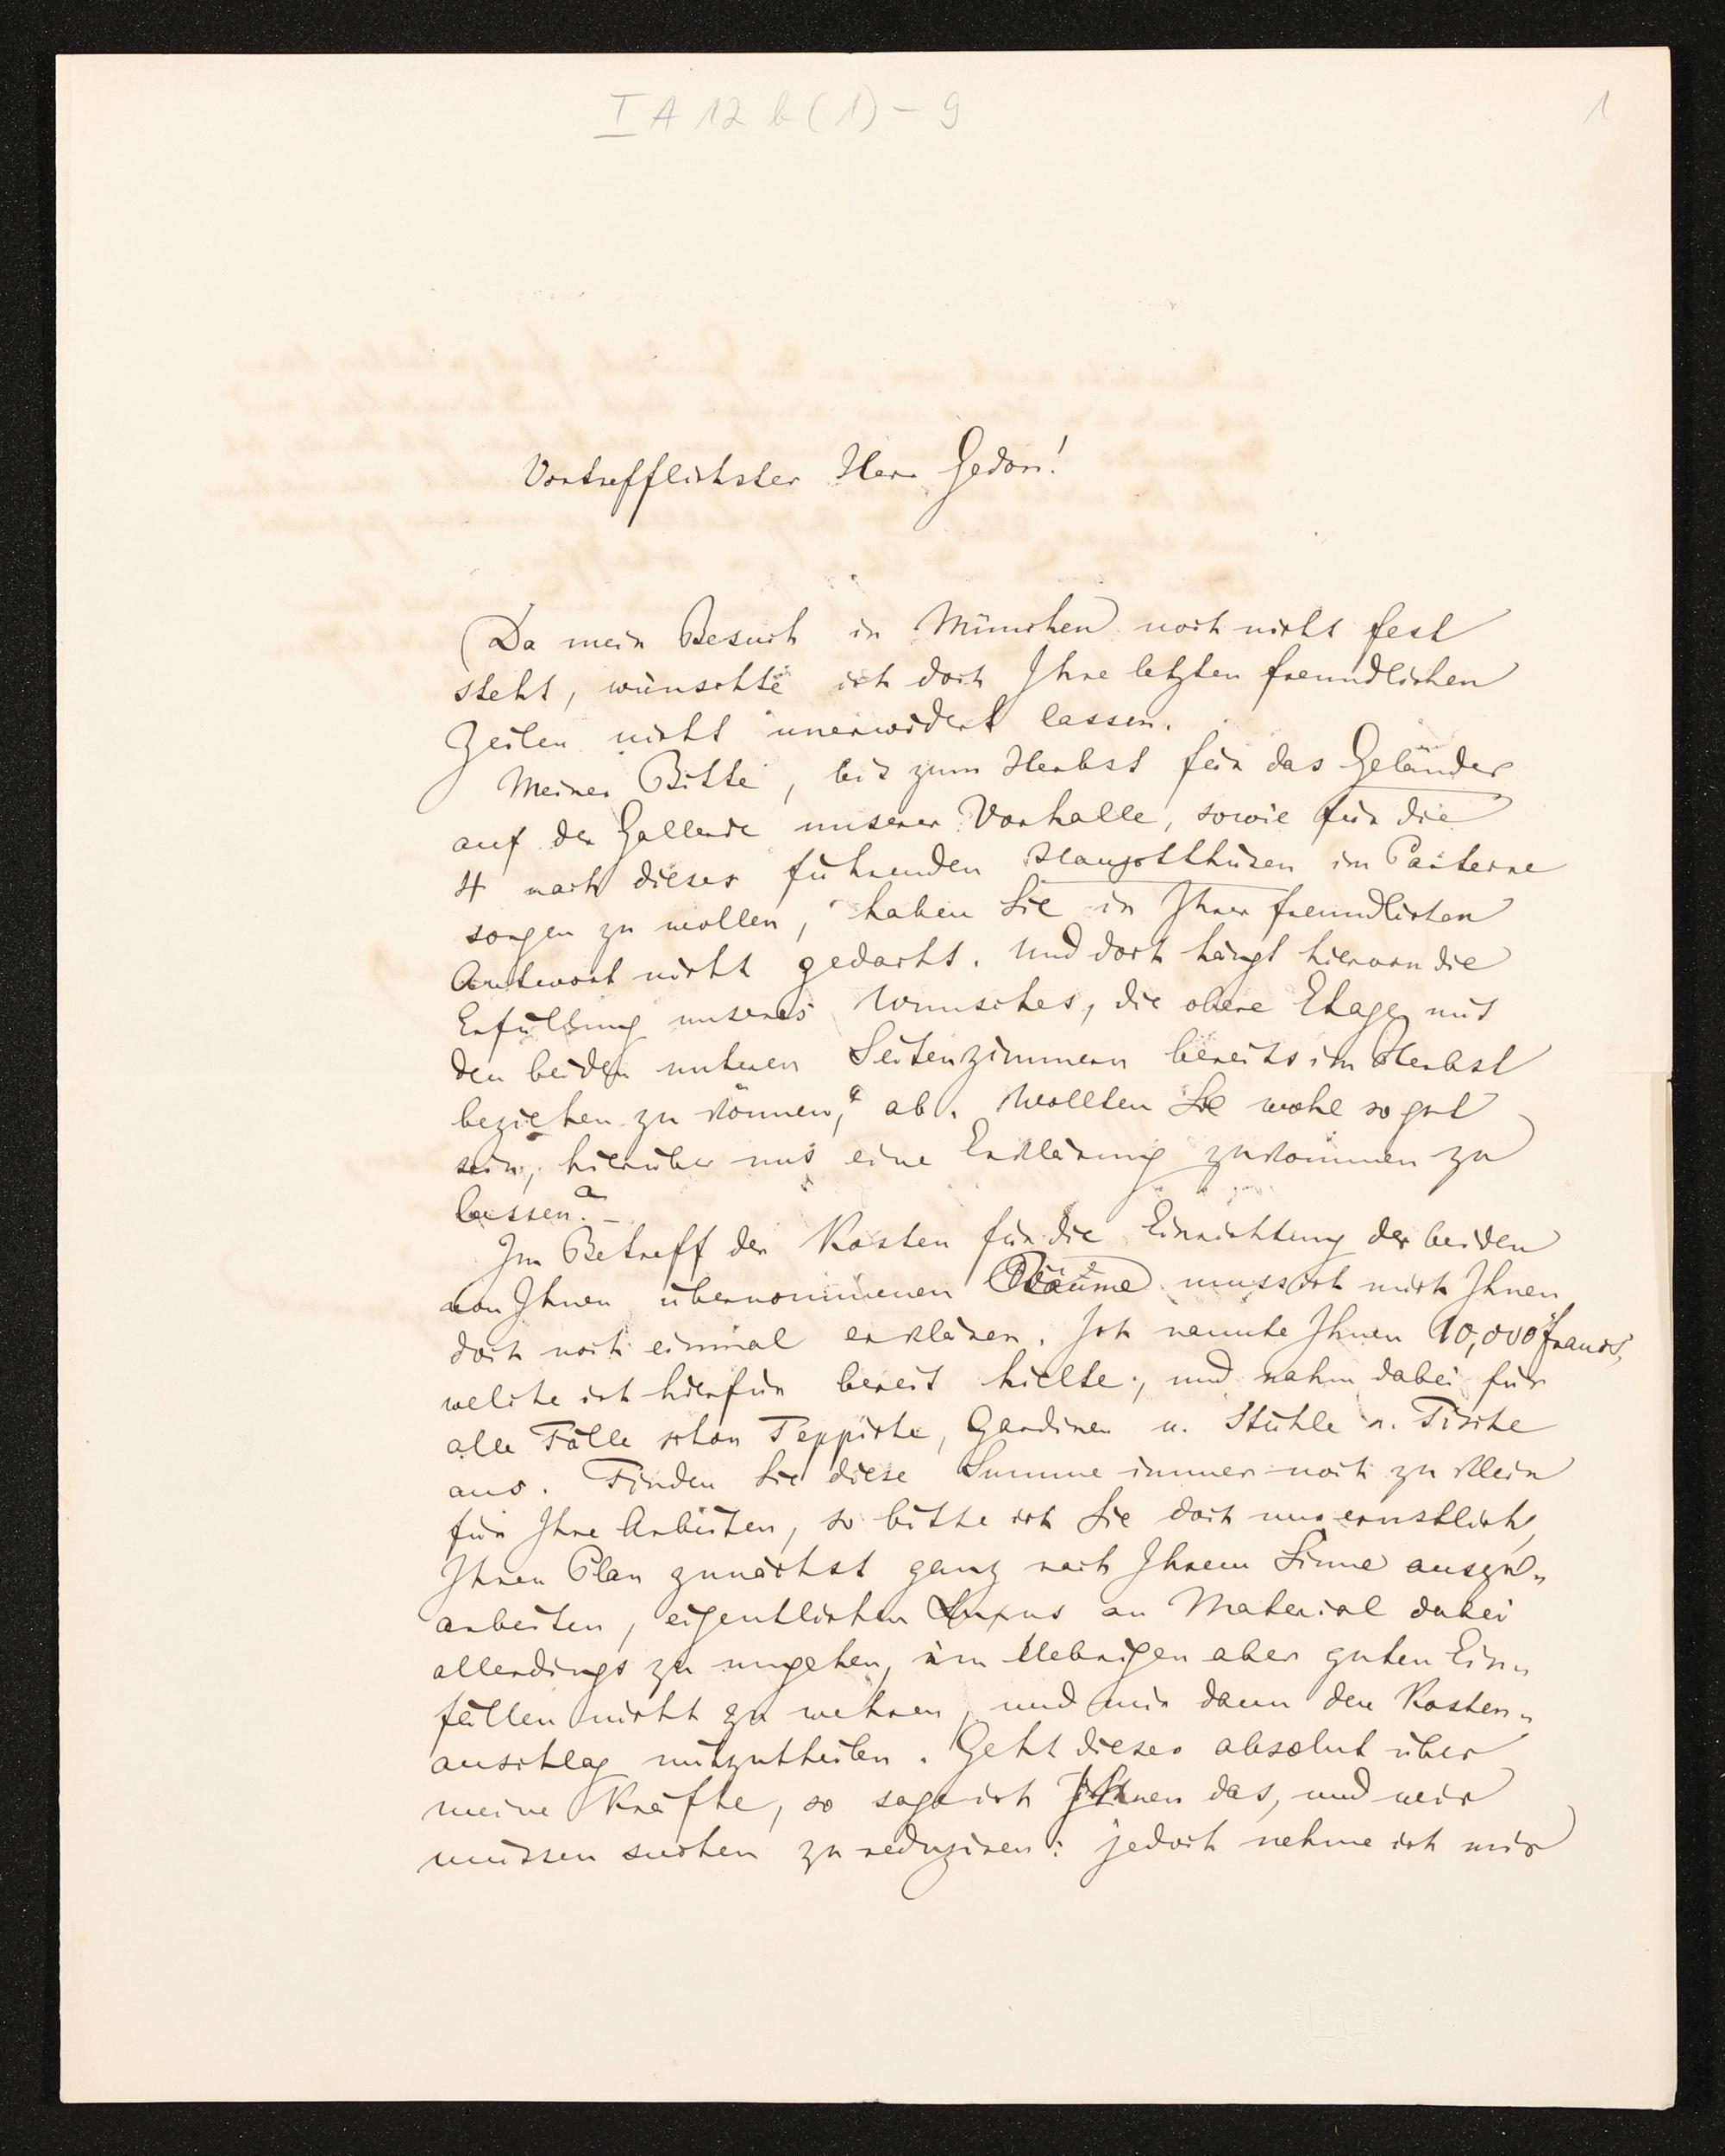 I A 12 b (1) – 9
1
Vortrefflichster Herr Gedon!
Da mein Besuch in München noch nicht fest
steht, wünschte ich doch Ihre letzten freundlichen
Zeilen nicht unerwidert lassen.
Meiner Bitte, bis zum Herbst für das Geländer
auf der Gallerie unserer Vorhalle, sowie für die
4 nach dieser führenden Hauptthüren im Parterre
sorgen zu wollen, haben Sie in Ihrer freundlichen
Antwort nicht gedacht. Und doch hängt hiervon die
Erfüllung unseres Wunsches, die obere Etage mit
den beiden unteren Seitenzimmern bereits im Herbst
beziehen zu können, ab. Wollten Sie wohl so gut
sein, hierüber mir eine Erklärung zukommen zu
lassen? –
Im Betreff der Kosten für die Einrichtung der beiden
von Ihnen übernommenen Räume muss ich mich Ihnen
doch noch einmal erklären. Ich nannte Ihnen 10,000 francs,
welche ich hierfür bereit hielte, und nahm dabei für
alle Fälle schon Teppiche, Gardinen u. Stühle u. Tische
aus. Finden Sie diese Summe immer noch zu klein
für Ihre Arbeiten, so bitte ich Sie doch nur ernstlich,
Ihren Plan zunächst ganz nach Ihrem Sinne auszu-
arbeiten, eigentlichen Luxus an Material dabei
allerdings zu umgehen, im Uebrigen aber guten Ein-
fällen nicht zu wehren, und mir dann den Kosten-
anschlag mitzutheilen. Geht dieser absolut über
meine Kräfte, so sage ich Ihnen das, und wir
müssen suchen zu reduziren: jedoch nehme ich mir